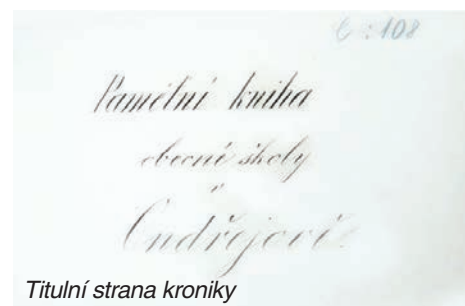 č: 108
Pamětní kniha
obecní školy
v
Ondřejově.
Titulní strana kroniky